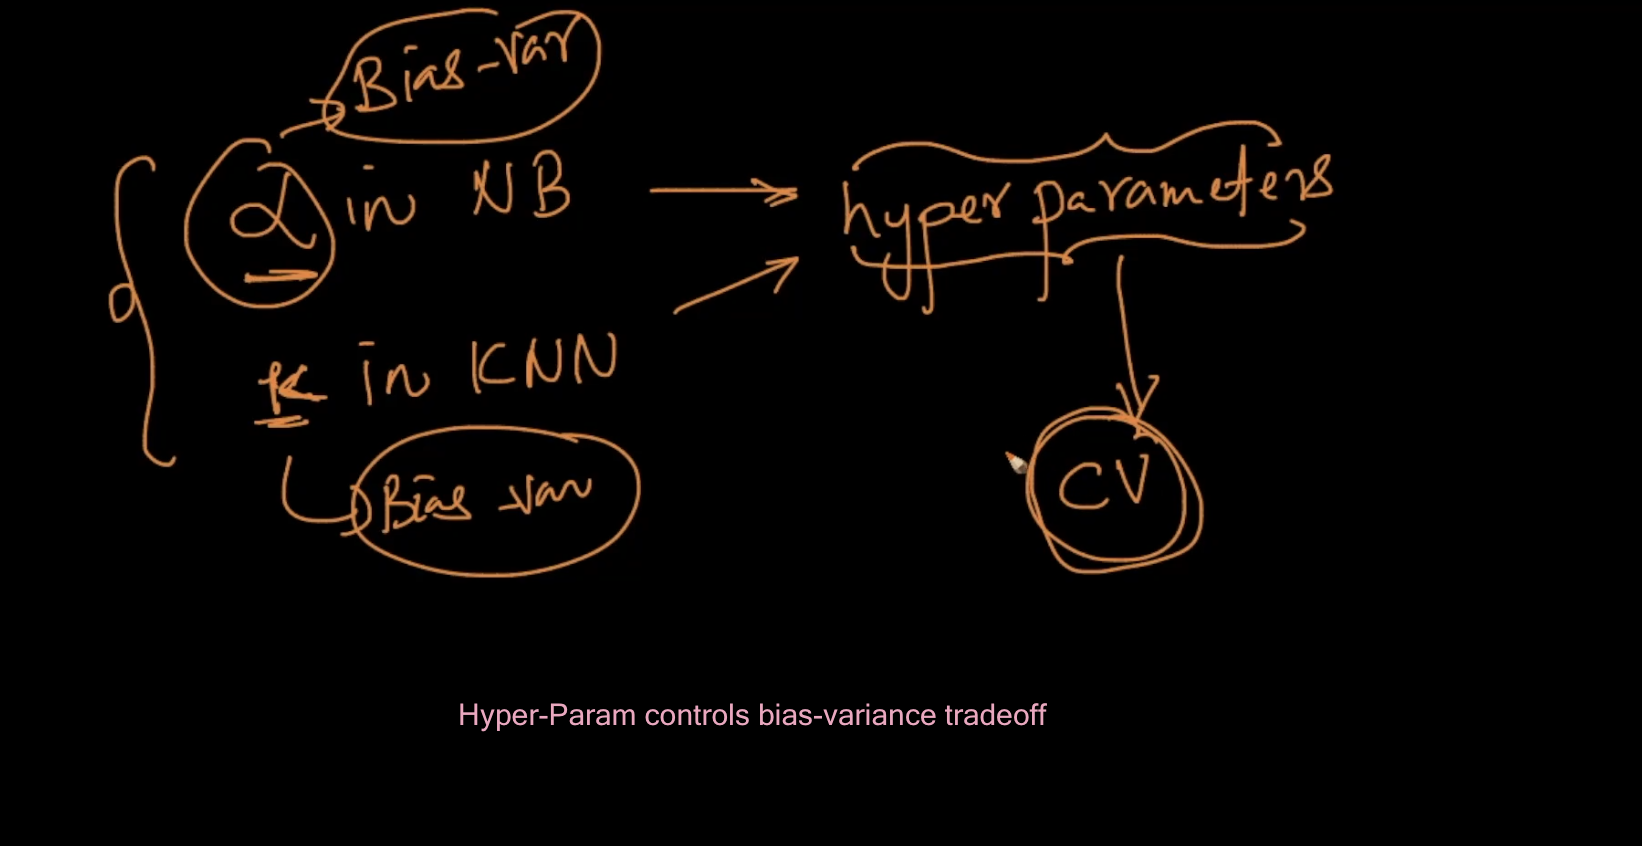 Bias-Var
α in NB
hyper parameters
k in KNN
Bias-Var
CV
Hyper-Param controls bias-variance tradeoff